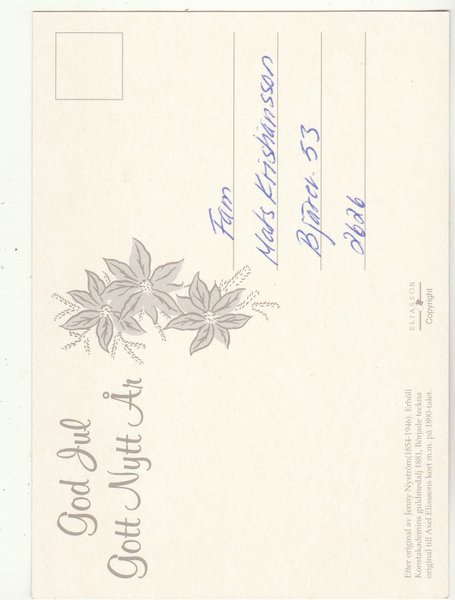 God Jul
Gott Nytt År
Efter original av Jenny Nyström(1854-1946). Erhöll
Konstakademins guldmedalj 1881, Började teckna
original till Axel Eliassons kort m.m. på 1890-talet.
ELIASSON
Copyright
Fam
Mats Kristiansson
53
2626